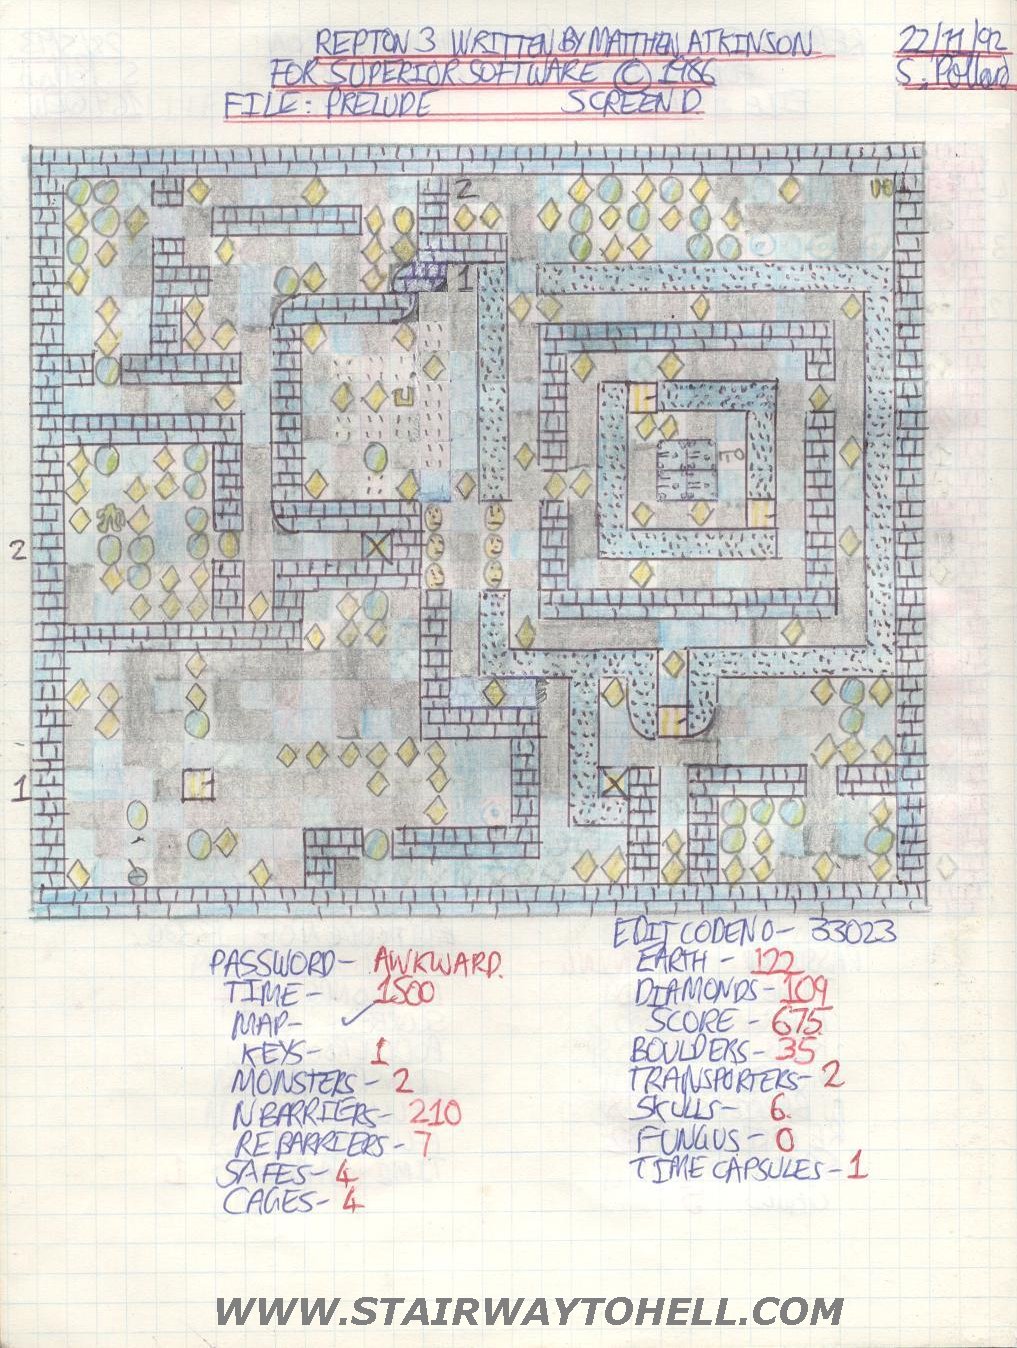 REPTON 3 WRITTEN BY MATTHEW ATKINSON
22/11/92
FOR SUPERIOR SOFTWARE © 1986
S. Pollard
FILE: PRELUDE SCREEN D.
2
1
2
1
EDIT CODE NO- 33023
PASSWORD- AWKWARD.
EARTH- 122
TIME- 1500
DIAMONDS- 109
MAP- ✓
SCORE- 675
KEYS- 1
BOULDERS- 35
MONSTERS- 2
TRANSPORTERS- 2
N BARRIERS- 210
SKULLS- 6.
RE BARRIERS- 7
FUNGUS- 0
SAFES- 4
TIME CAPSULES- 1
CAGES- 4
WWW.STAIRWAYTOHELL.COM